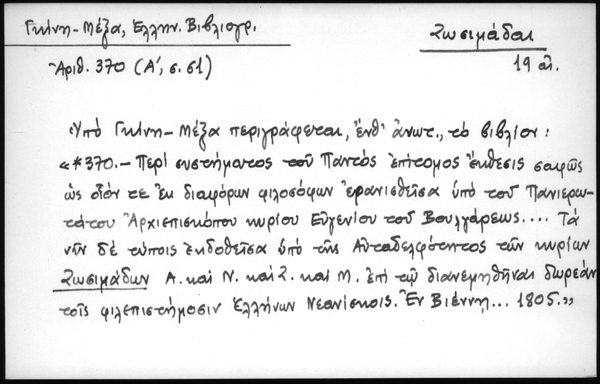 Γκίνη-Μέξα, Ἑλλην. Βιβλιογρ.
Ζωσιμάδαι
Ἀριθ. 370 (Α', σ. 61)
19 αἰ.
Ὑπό Γκίνη-Μέξα περιγράφεται, ἔνθ' ἀνωτ., τὸ βιβλίον:
«*370.- Περί συστήματος τοῦ Παντός ἐπίτομος ἔκθεσις σαφῶς
ὡς οἷόν τε ἐκ διαφόρων φιλοσόφων ἐρανισθεῖσα ὑπό τοῦ Πανιερω-
τάτου Ἀρχιεπισκόπου κυρίου Εὐγενίου τοῦ Βουλγάρεως.... Τά
νῦν δέ τύποις ἐκδοθεῖσα ὑπό τῆς Αὐταδελφότητος τῶν κυρίων
Ζωσιμάδων Α. καί Ν. καί Ζ. καί Μ. ἐπί τῷ διανεμηθῆναι δωρεάν
τοῖς φιλεπιστήμοσιν Ἑλλήνων Νεανίσκοις. Ἐν Βιέννῃ... 1805.»